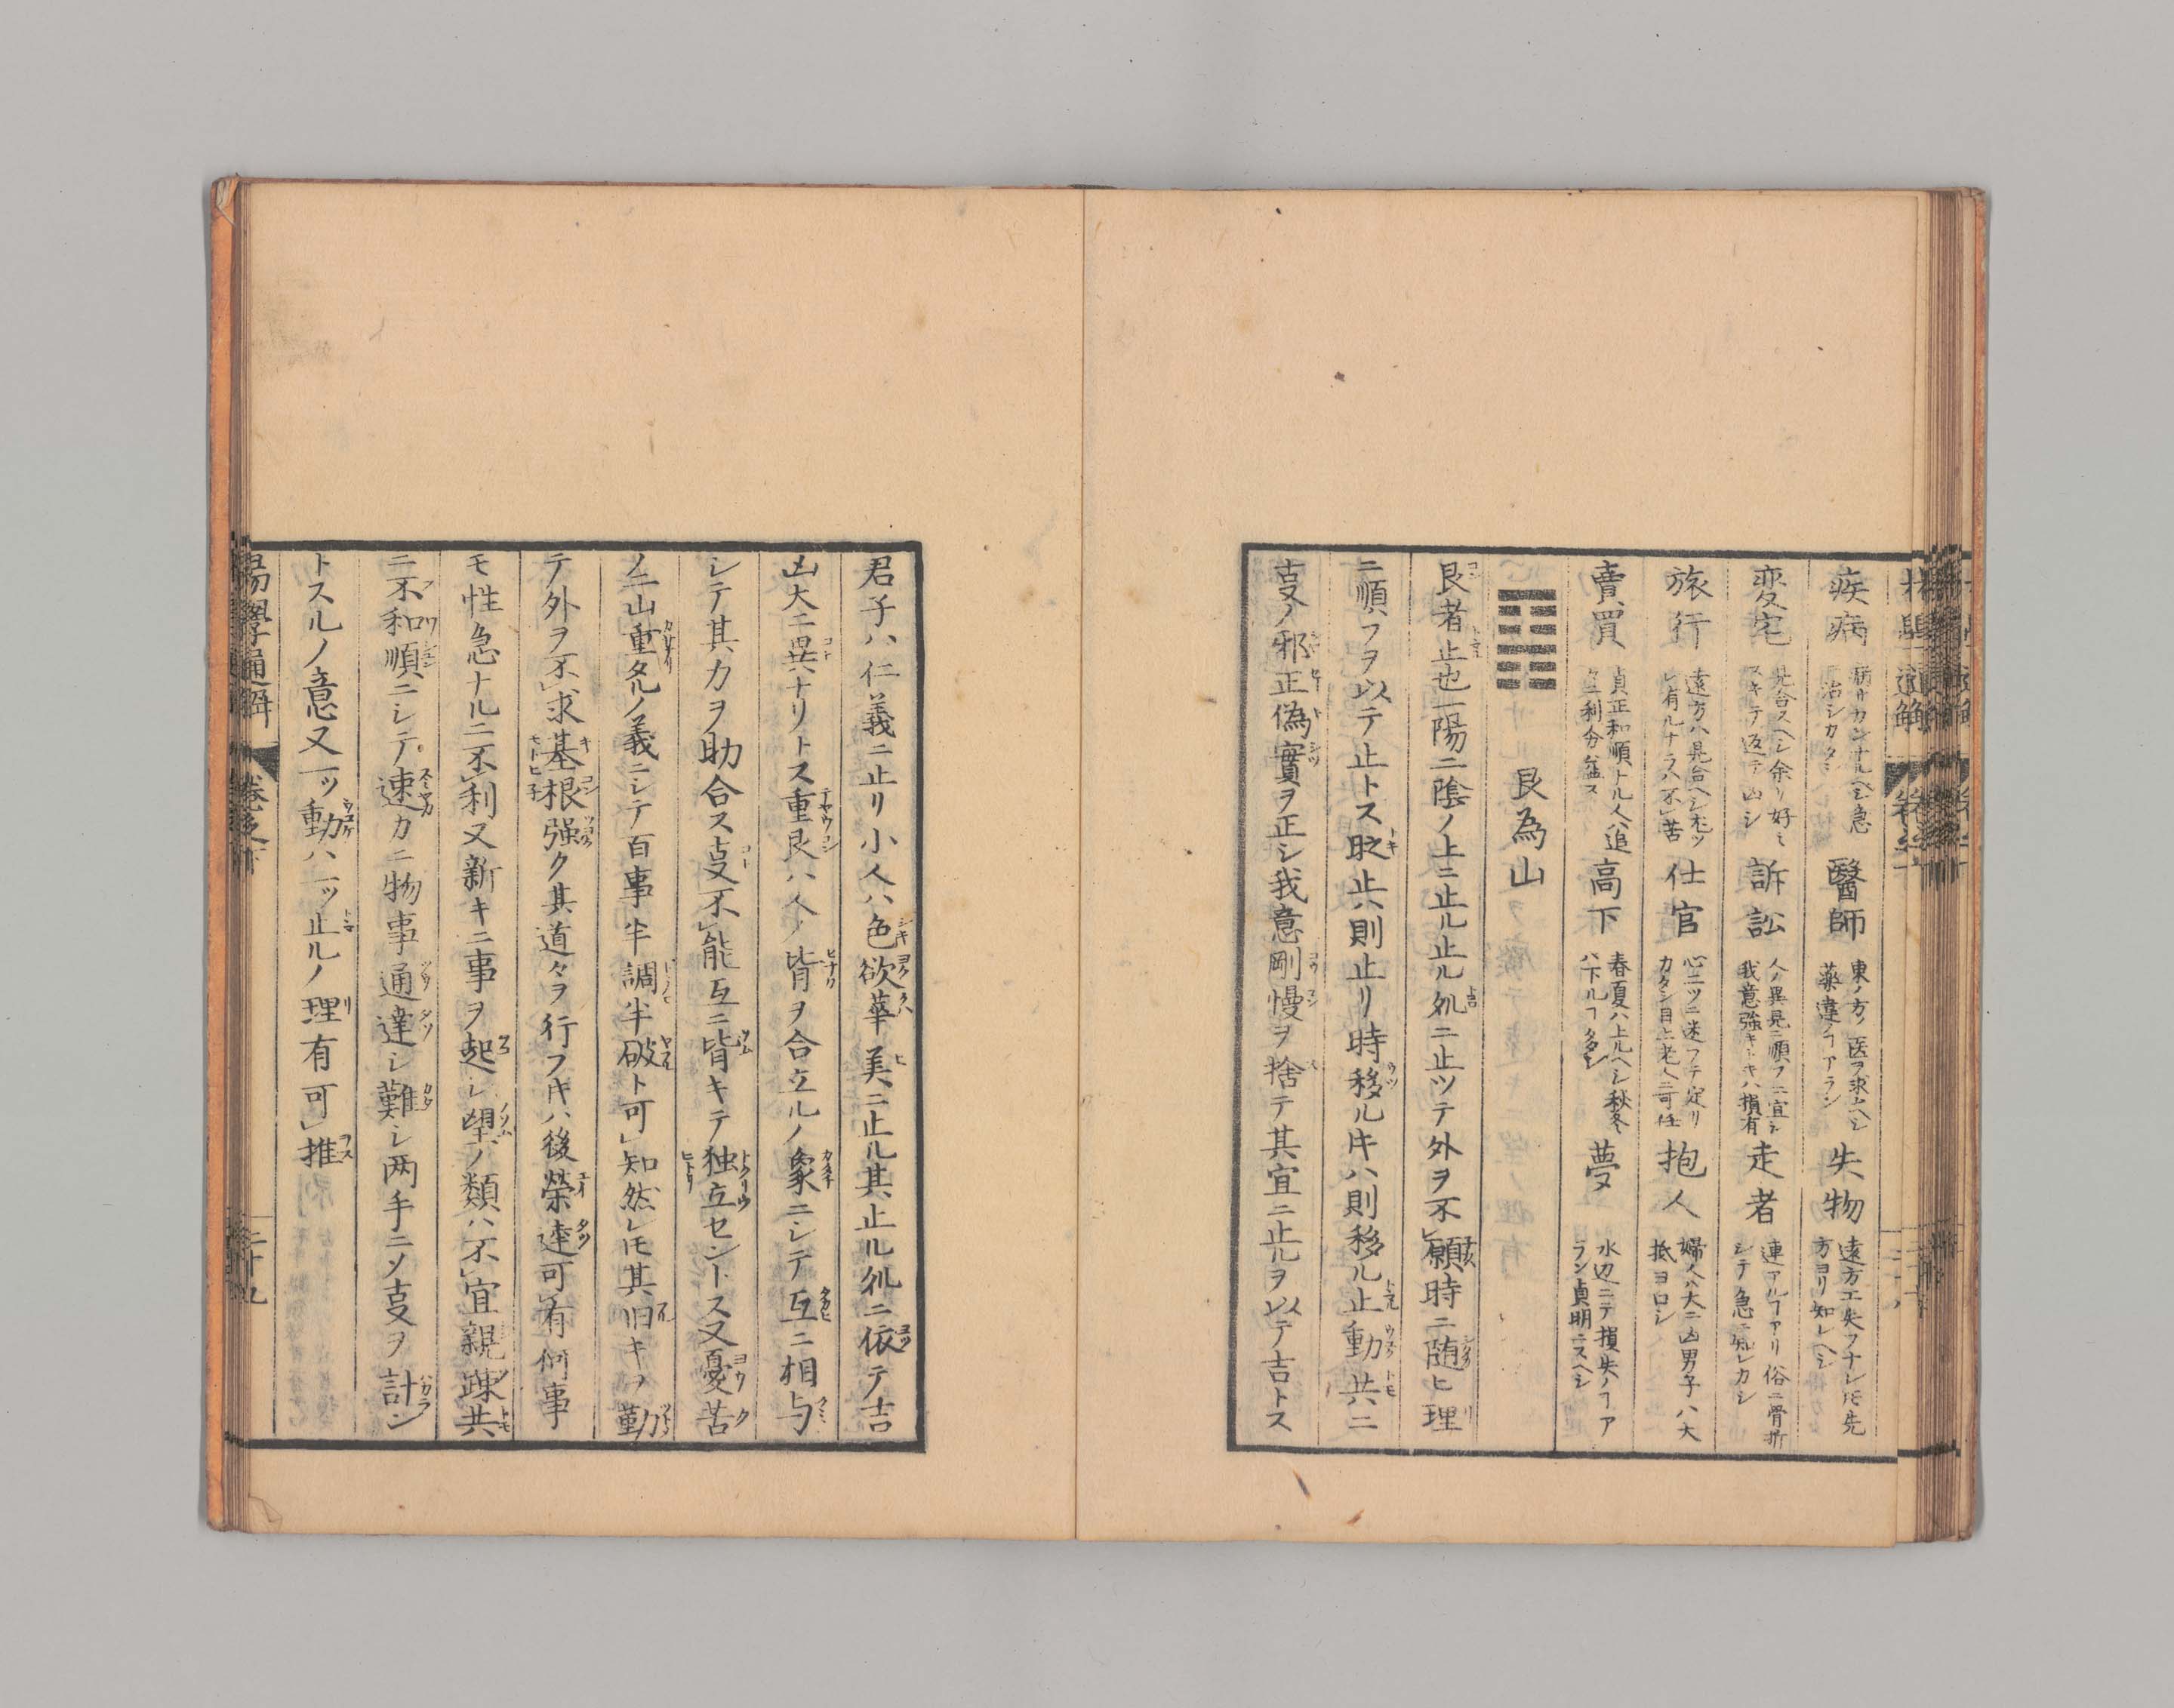 疾病 病サカンナルヘシ急ニ治シカタシ 醫師 東ノ方ノ医ヲ求ムヘシ薬違ノヿアラン 失物 遠方エ失フナレ𪜈先方ヨリ知レヘシ
変宅 見合スヘシ余リ好ミスキテ返テ凶シ 訴訟 人ノ異見ニ順フニ宜シ我意強キトキハ損有 走者 連アルヿアリ俗ニ骨折シテ急ニ知レカシ
旅行 遠方ハ見合ヘシ充ツレ有ルナラハ不苦 仕官 心二ツニ迷フテ定リカタシ目上老人ニ可任 抱人 婦人ハ大ニ凶男子ハ大抵ヨロシ
賣買 貞正和順ナル人ハ追々ニ利分益ス 高下 春夏ハ上ルヘシ秋冬ハ下ルヿタシ 夢 水辺ニテ損失ノヿアラン貞明ニスヘシ
䷳ 艮為山
艮者止也一陽二陰ノ上ニ止ル止ル処ニ止ツテ外ヲ不願時ニ随ヒ理
ニ順フヲ以テ止トス時止ハ則止リ時移ル𪜈ハ則移ル止動共ニ
事ノ邪正偽實ヲ正シ我意剛慢ヲ捨テ其宜ニ止ルヲ以テ吉トス
君子ハ仁義ニ止リ小人ハ色欲華美ニ止ル其止ル処ニ依テ吉
凶大ニ異ナリトス重艮ハ人ノ背ヲ合立ルノ象ニシテ互ニ相与
シテ其力ヲ助合ス事不能互ニ背キテ独立セントス又憂苦
ノ二山重タルノ義ニシテ百事半調半破ト可知然レ𪜈其旧キヲ勤
テ外ヲ不求基根強ク其道々ヲ行フ𪜈ハ後榮達可有何事
モ性急ナルニ不利又新キニ事ヲ起シ望ノ類ハ不宜親疎共
ニ不和順ニシテ速カニ物事通達シ難シ两手ニソ事ヲ計ン
トスルノ意又一ッ動ハ一ッ止ルノ理有可推
易學通解 卷之下 二十九